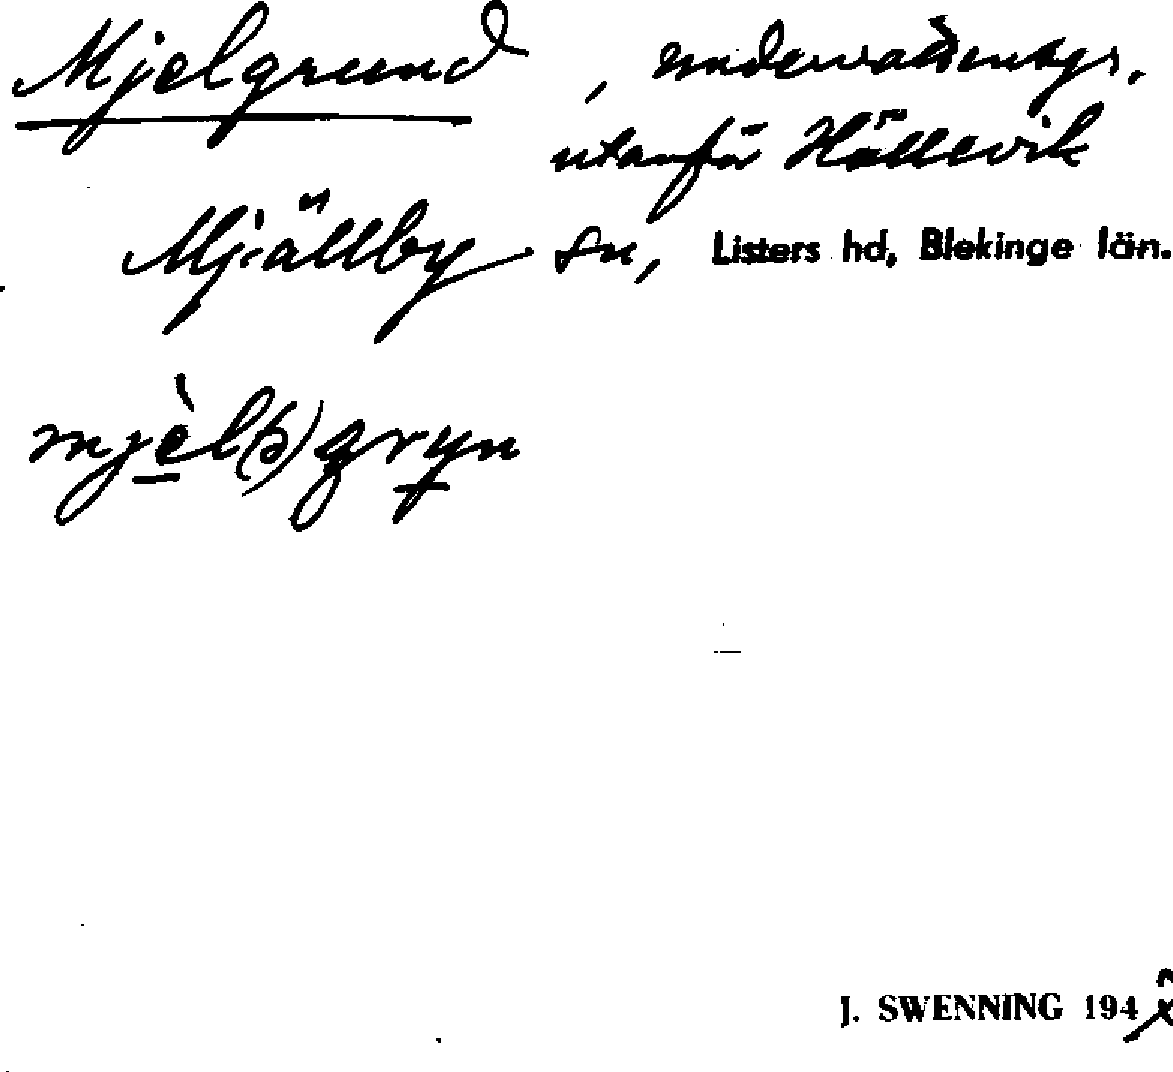 Mjelgrund, undervattensgr.
utanför Hällevik
Mjällby sn, Listers hd, Blekinge län.
mjèl(ə)gryn
J. SWENNING 194